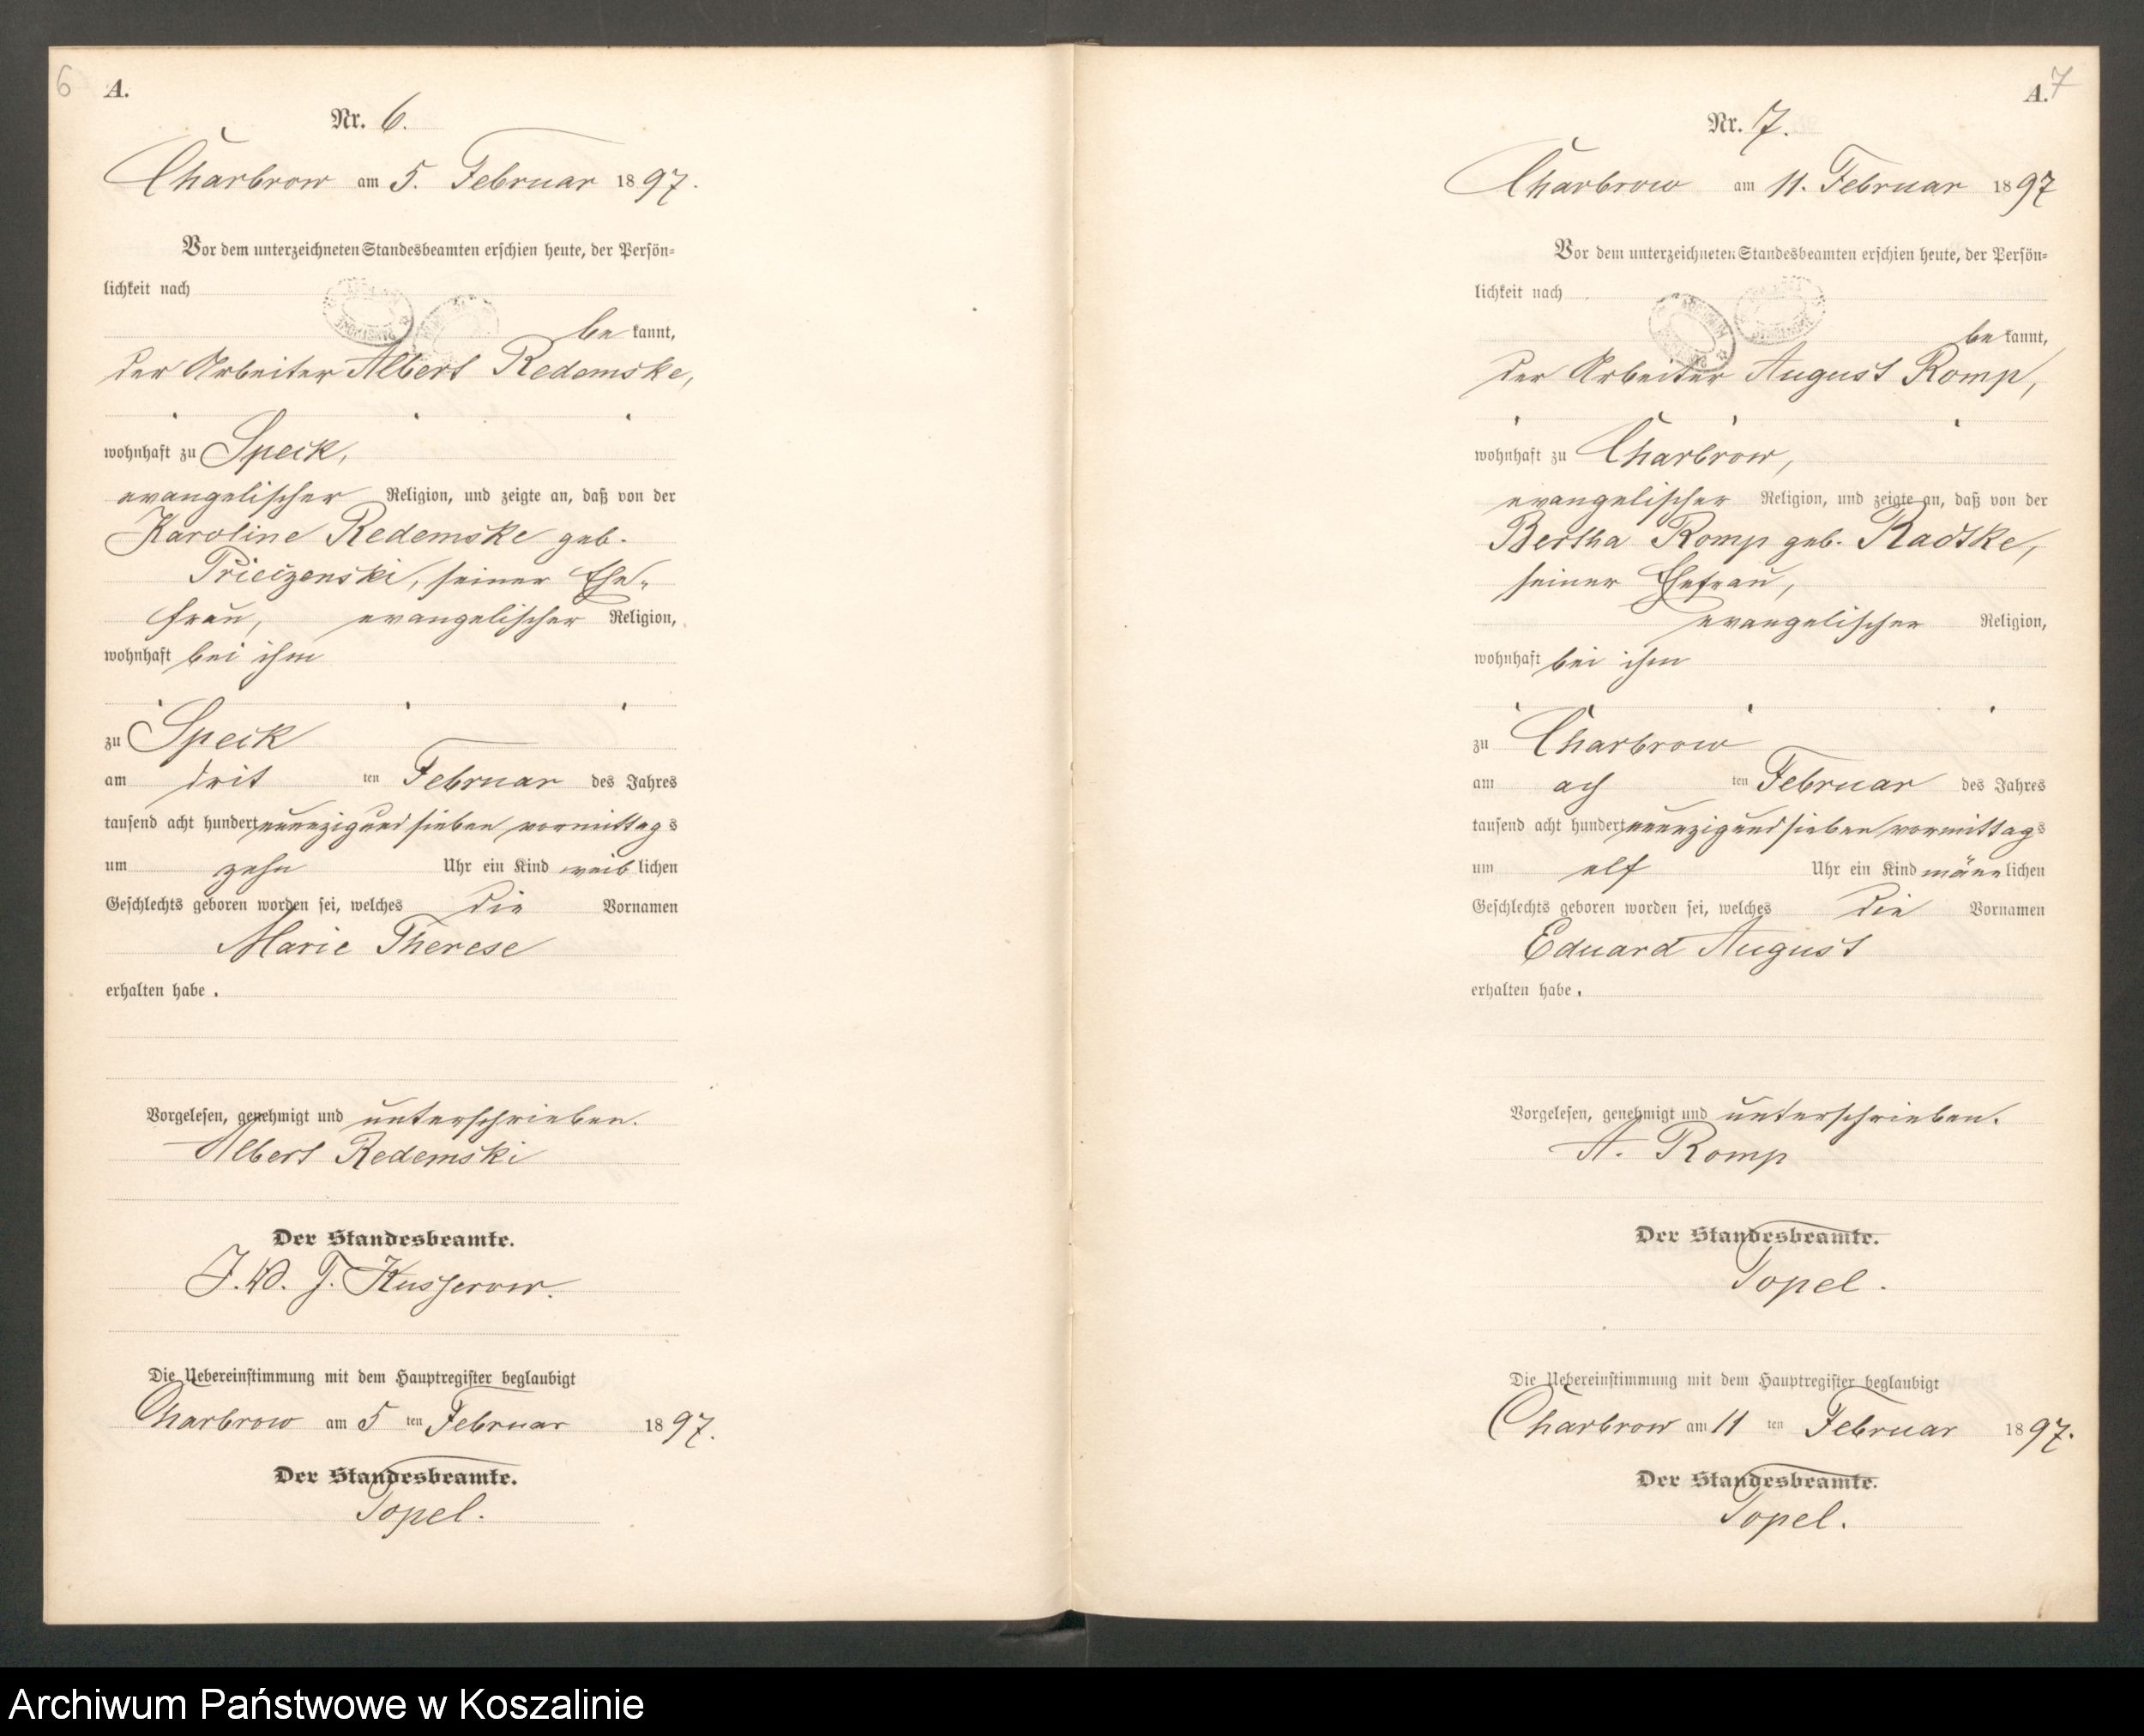 6
A.
Nr. 6.
Charbrow am 5. Februar 1897.
Vor dem unterzeichneten Standesbeamten erschien heute, der Persön-
lichkeit nach
be kannt,
der Arbeiter Albert Redemske,
wohnhaft zu Speck,
evangelischer Religion, und zeigte an, daß von der
Karoline Redemske geb.
seiner Ehe-
frau, evangelischer Religion,
wohnhaft bei ihm
zu Speck
am drit ten Februar des Jahres
tausend acht hundert neunzig und sieben vormittags
um zehn Uhr ein Kind weib lichen
Geschlechts geboren worden sei, welches die Vornamen
Marie Therese
erhalten habe.
Vorgelesen, genehmigt und unterschrieben.
Albert Redemski
Der Standesbeamte.
Kusserow.
Die Uebereinstimmung mit dem Hauptregister beglaubigt
Charbrow am 5 ten Februar 1897.
Der Standesbeamte.
Topel.
7
A.
Nr. 7.
Charbrow am 11. Februar 1897
Vor dem unterzeichneten Standesbeamten erschien heute, der Persön-
lichkeit nach
be kannt,
der Arbeiter August Romp,
wohnhaft zu Charbrow,
evangelischer Religion, und zeigte an, daß von der
Bertha Romp geb. Radtke,
seiner Ehefrau,
evangelischer Religion,
wohnhaft bei ihm
zu Charbrow
am ach ten Februar des Jahres
tausend acht hundert neunzig und sieben vormittags
um elf Uhr ein Kind männ lichen
Geschlechts geboren worden sei, welches die Vornamen
Eduard August
erhalten habe.
Vorgelesen, genehmigt und unterschrieben.
A. Romp
Der Standesbeamte.
Topel.
Die Uebereinstimmung mit dem Hauptregister beglaubigt
Charbrow am 11 ten Februar 1897.
Der Standesbeamte.
Topel.
Archiwum Państwowe w Koszalinie